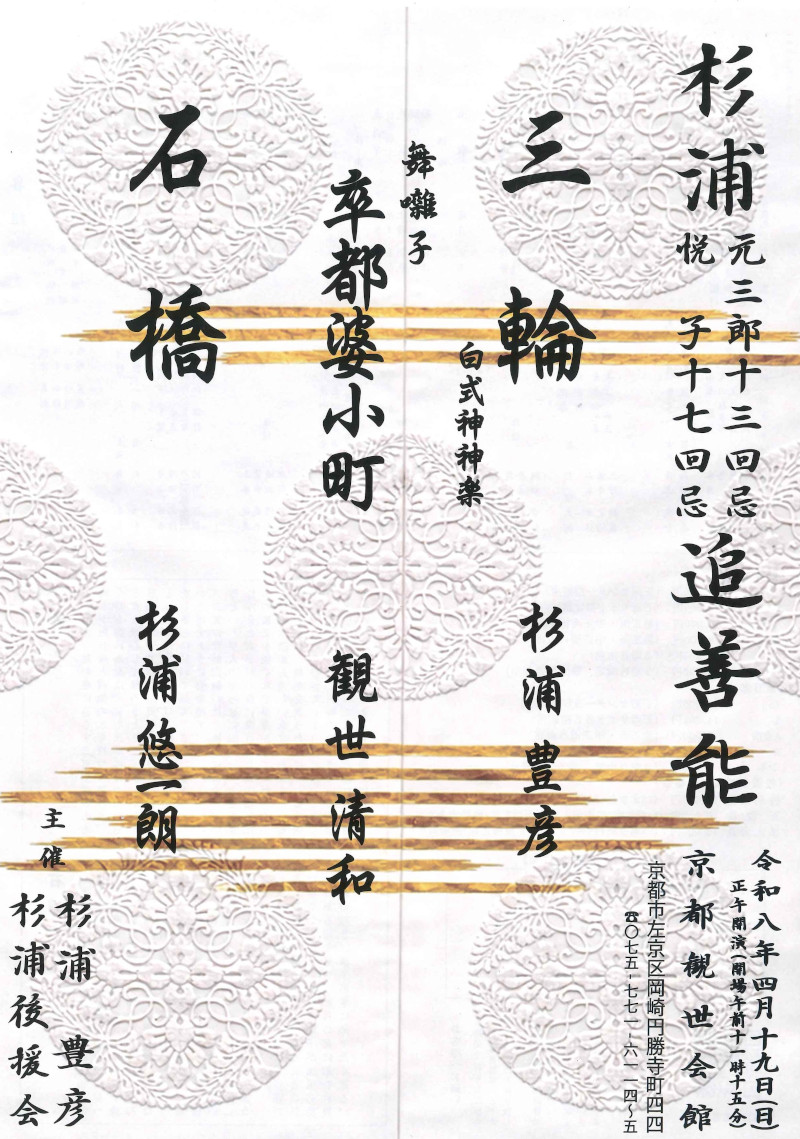 杉浦
元三郎十三回忌
悦子十七回忌
追善能
令和八年四月十九日(日)
正午開演(開場午前十一時十五分)
京都観世会館
京都市左京区岡崎円勝寺町四四
☎〇七五-七七一-六一一四〜五
三輪
白式神神楽
杉浦豊彦
舞囃子
卒都婆小町
観世清和
石橋
杉浦悠一朗
主催
杉浦豊彦
杉浦後援会